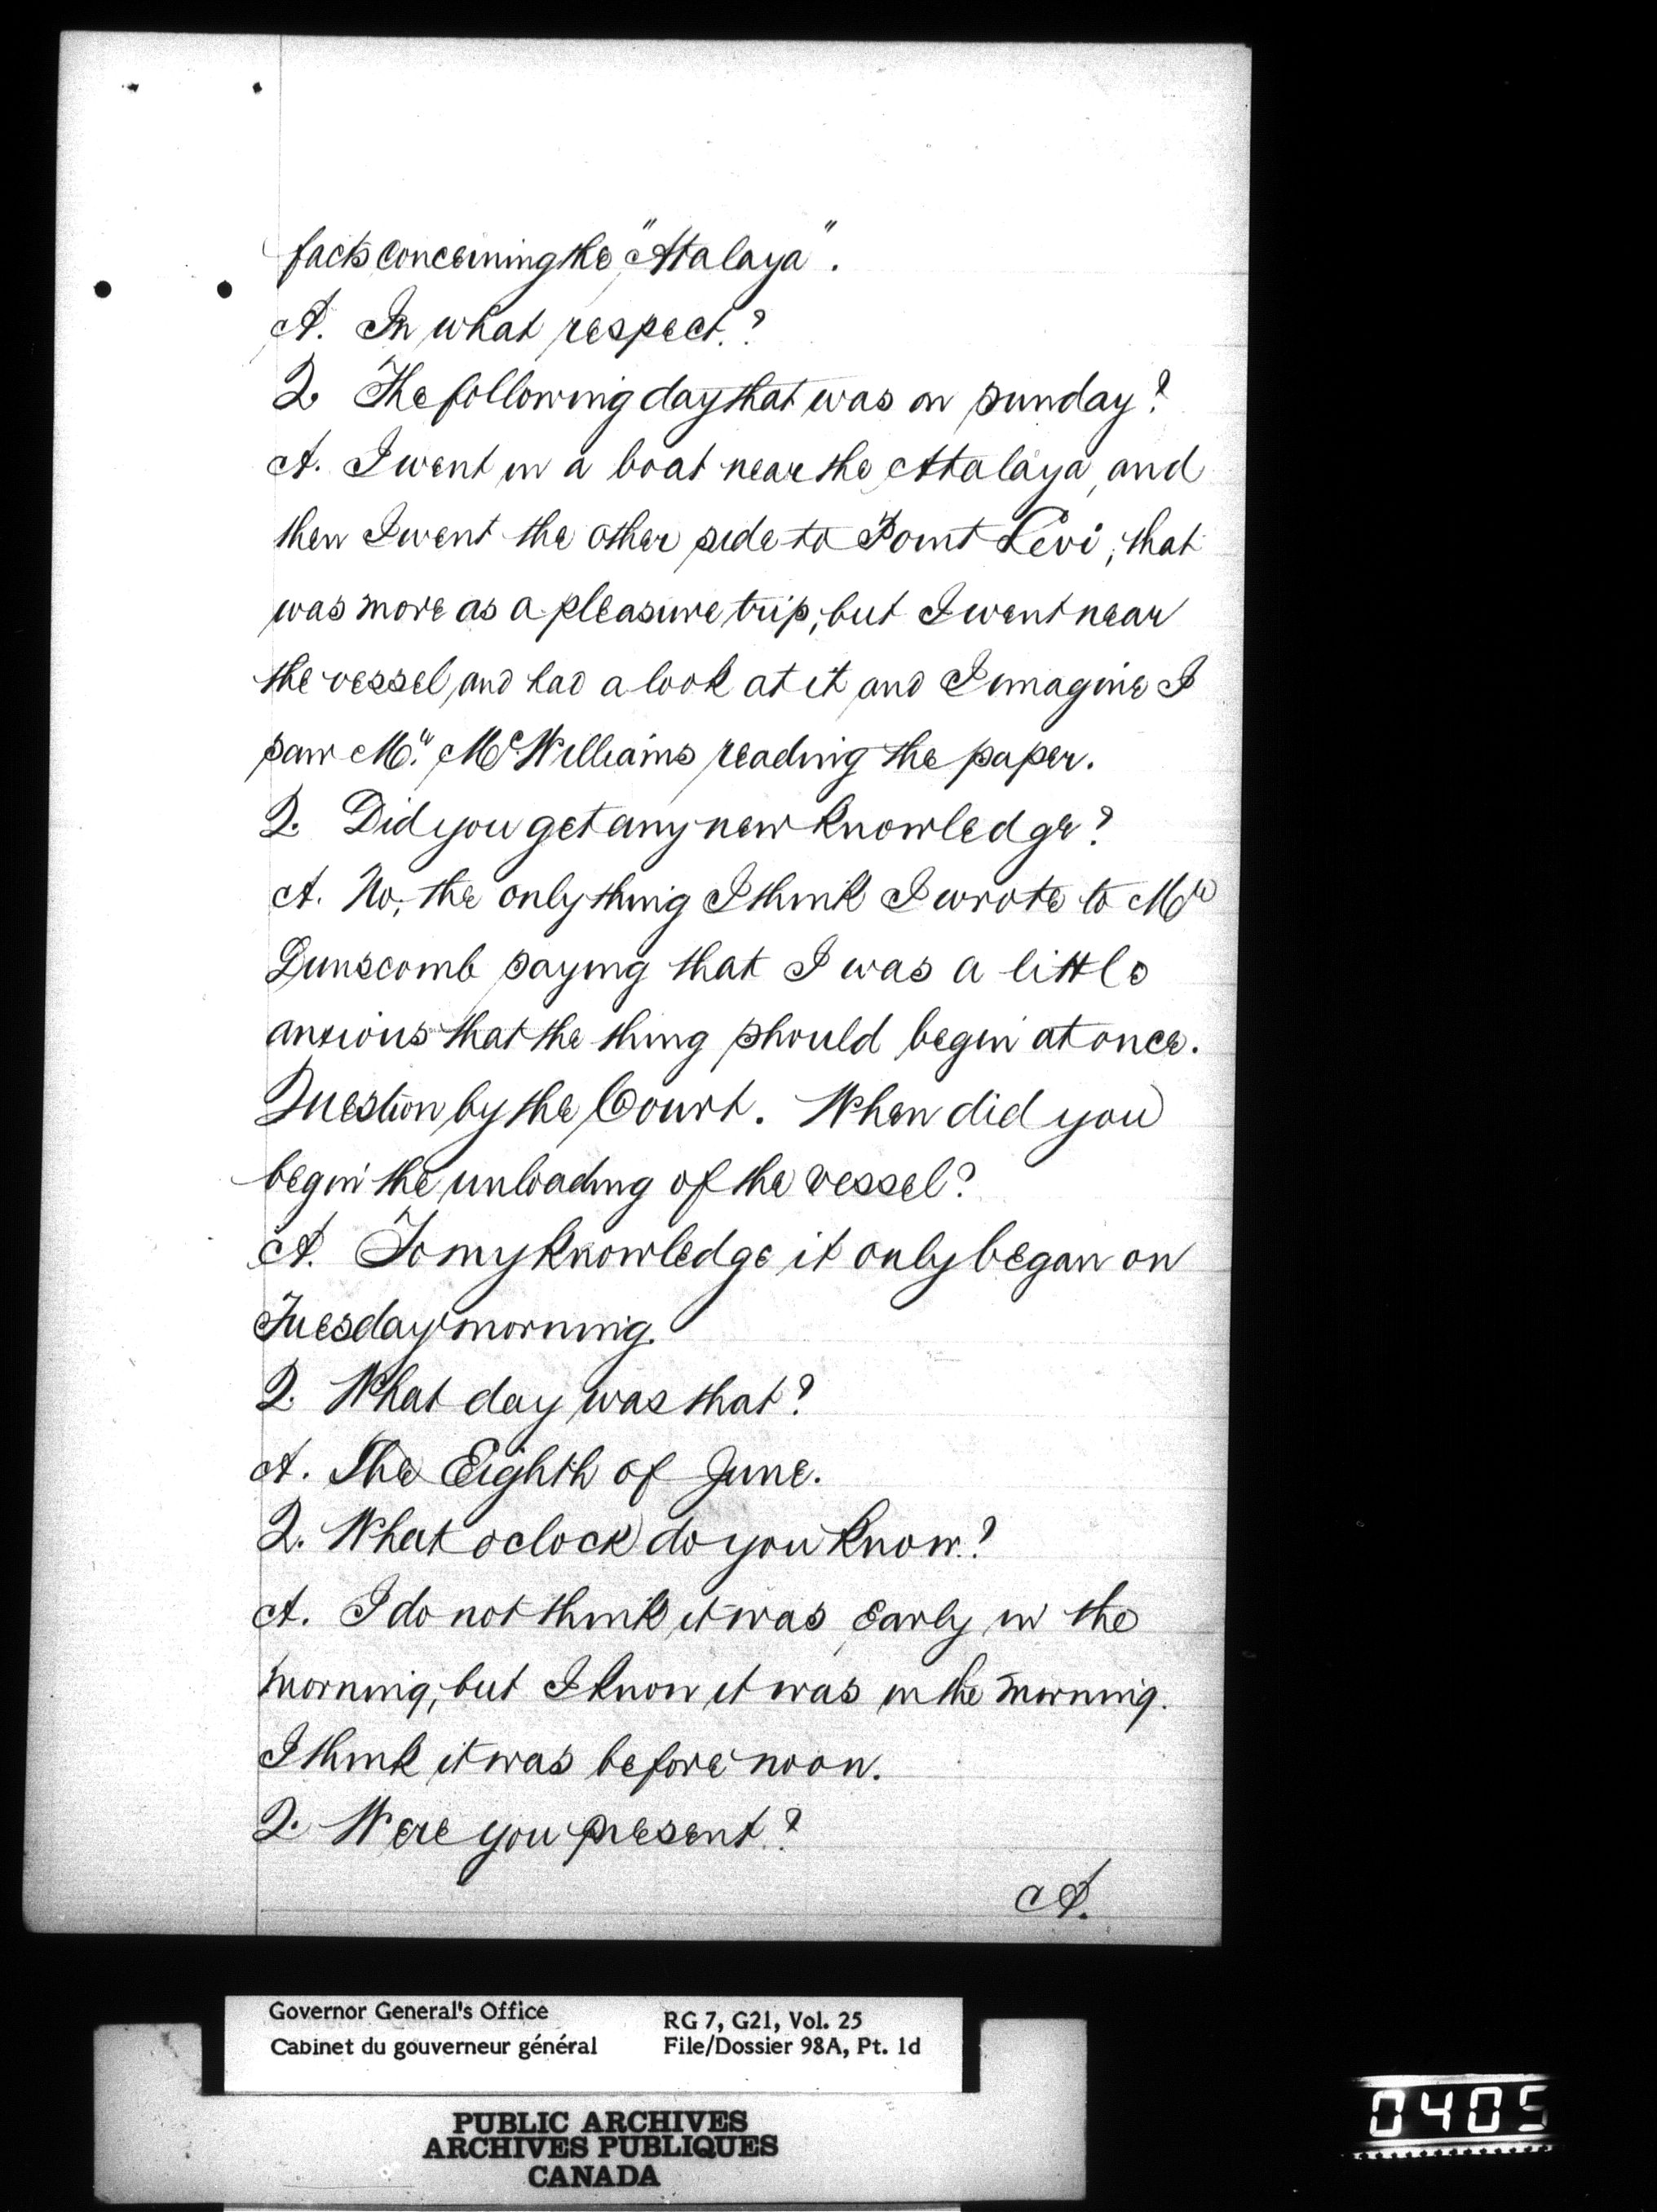 facts concerning the "Atalaya".
A. In what respect?
Q. The following day that was on sunday?
A. I went in a boat near the Atalaya, and
then I went the other side to Point Levi; that
was more as a pleasure trip; but I went near
the vessel and had a look at it and I imagine I
saw Mr. McWilliams reading the paper.
Q. Did you get any new knowledge?
A. No; the only thing I think I wrote to Mr
Dunscomb saying that I was a little
anxious that the thing should begin at once.
Question by the Court. When did you
begin the unloading of the vessel?
A. To my knowledge it only began on
Tuesday morning.
Q. What day was that?
A. The Eighth of June.
Q. What oclock do you know?
A. I do not think it was early in the
morning; but I know it was in the morning.
I think it was before noon.
Q. Were you present?
A.
Governor General's Office
Cabinet du gouverneur général
RG 7, G21, Vol. 25
File/Dossier 98A, Pt. 1d
PUBLIC ARCHIVES
ARCHIVES PUBLIQUES
CANADA
0405